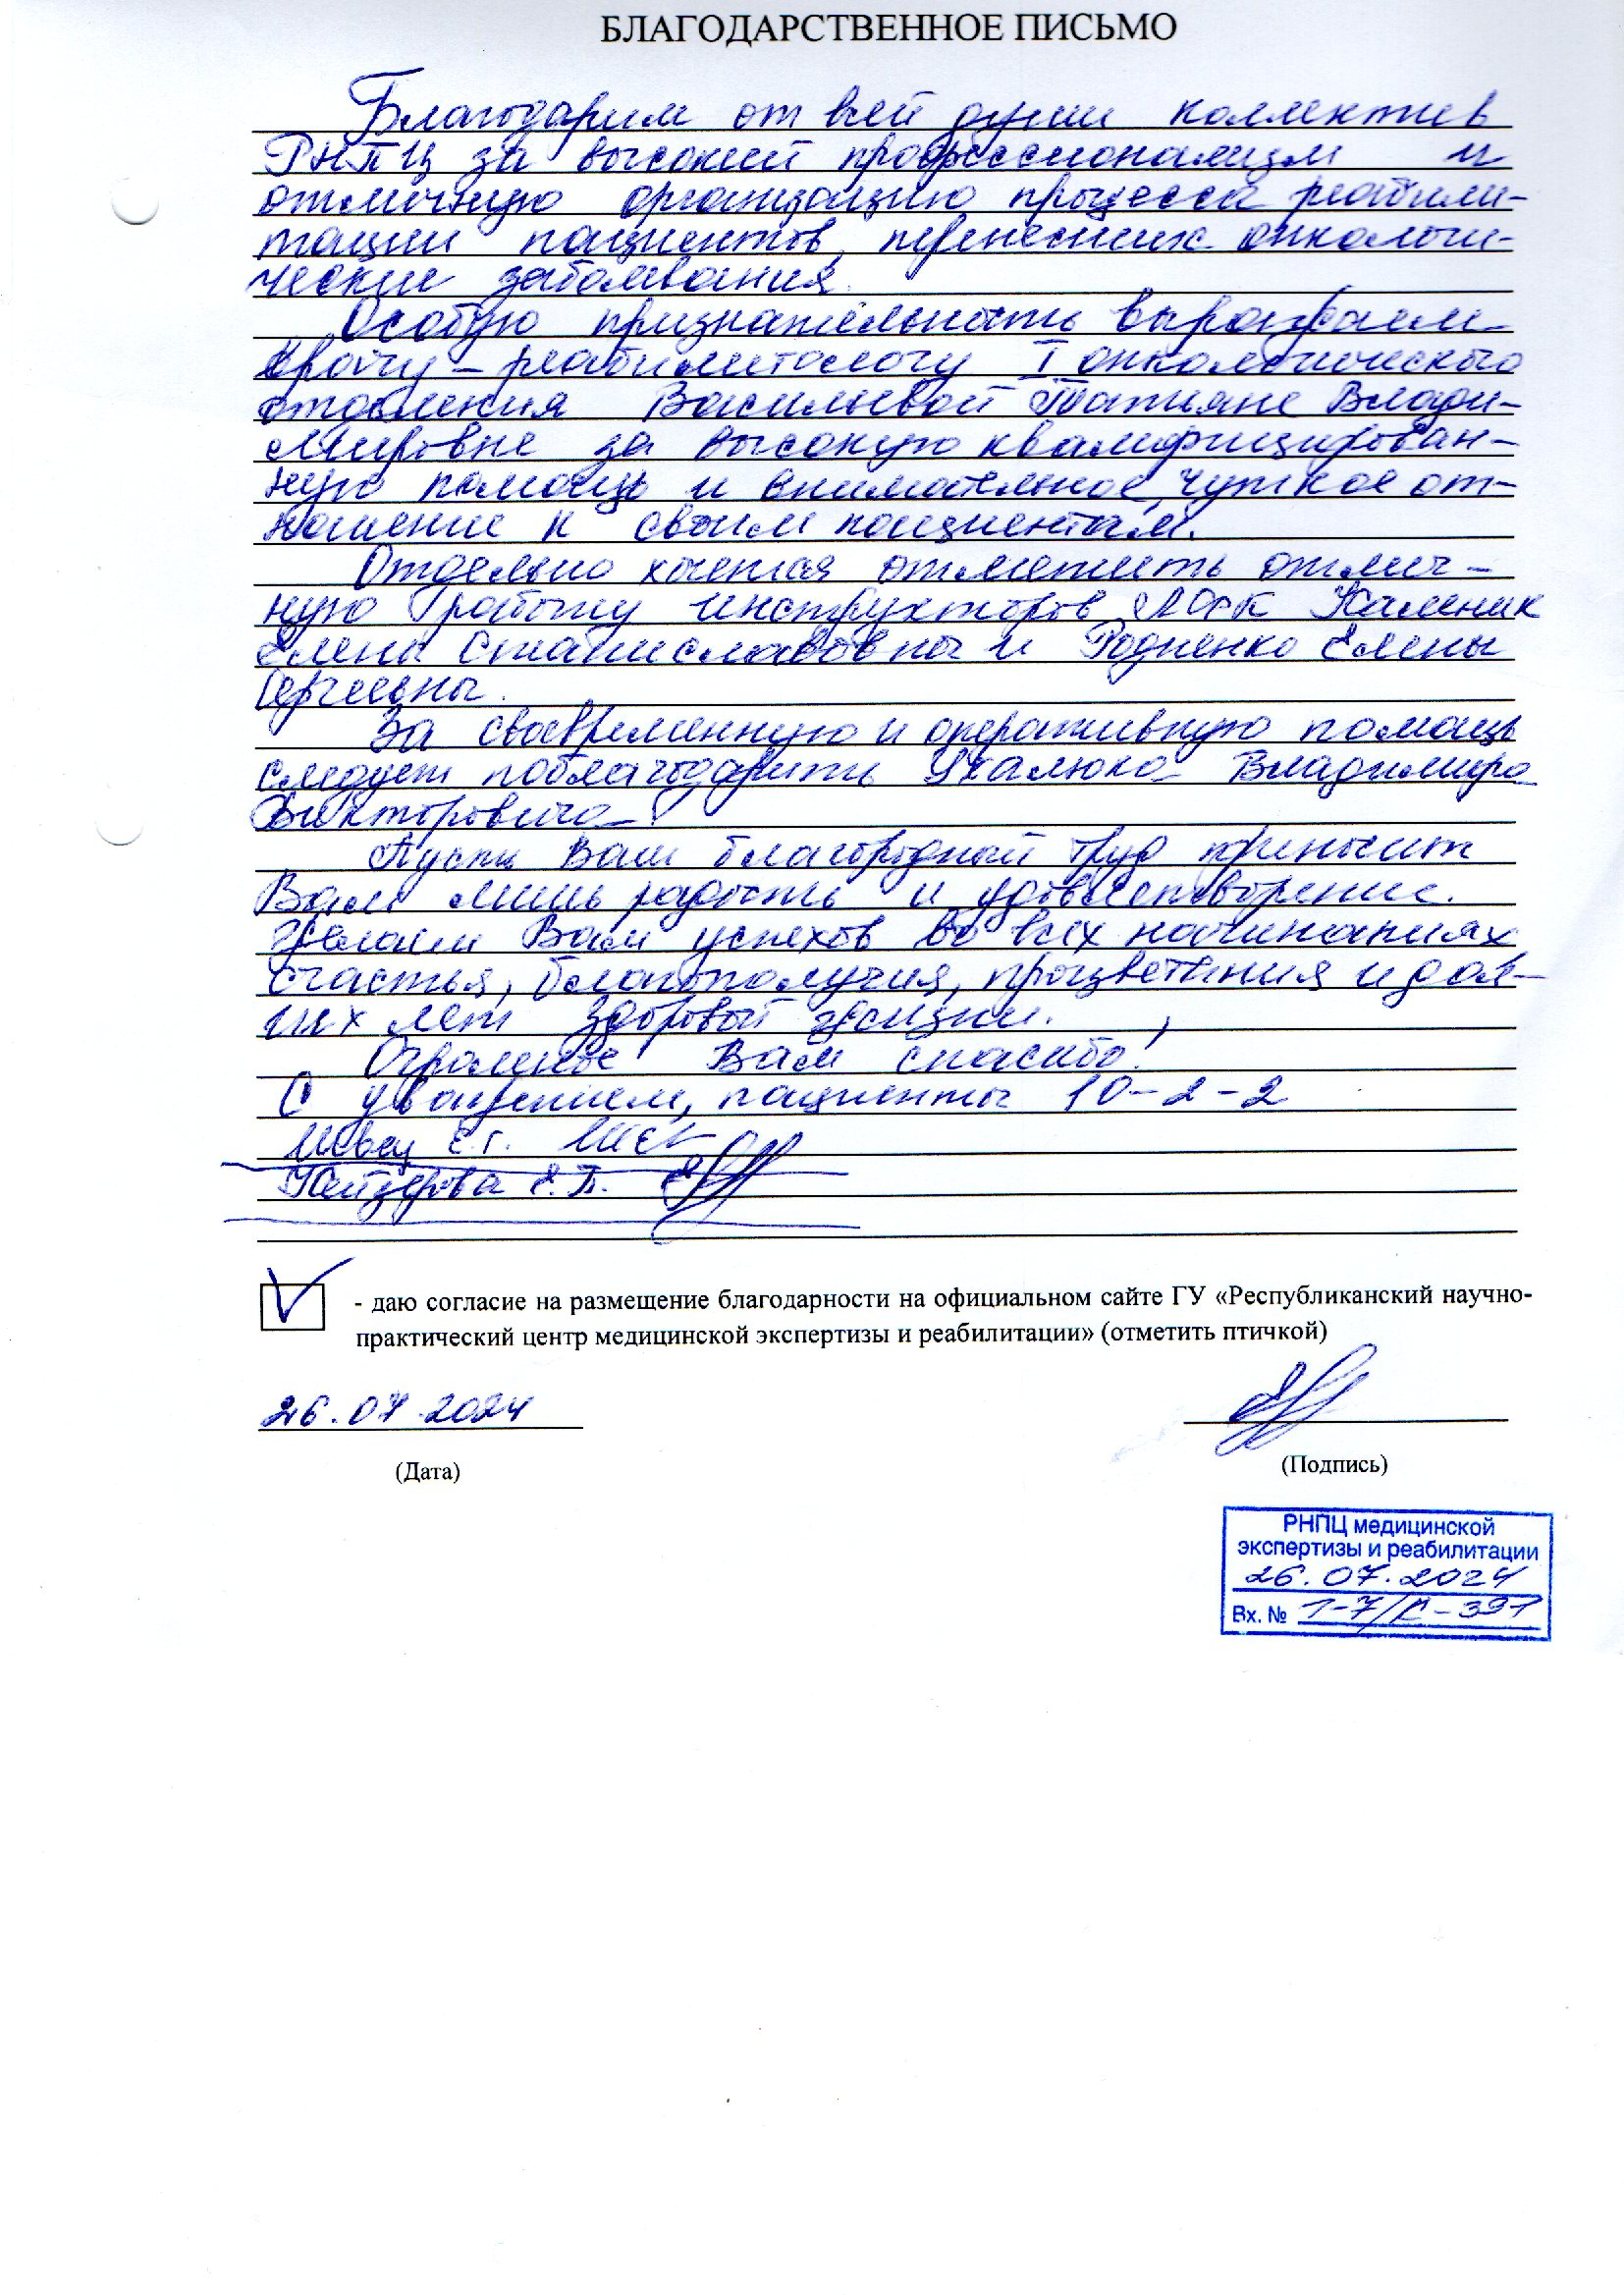 БЛАГОДАРСТВЕННОЕ ПИСЬМО
Благодарим от всей души коллектив
РНПЦ за высокий профессионализм и
отличную организацию процесса реабили-
тации пациентов, перенесших онкологи-
ческие заболевания.
Особую признательность выражаем
врачу-реабилитологу I онкологического
отделения Васильевой Татьяне Влади-
мировне за высокую квалифицирован-
ную помощь и внимательное, чуткое от-
ношение к своим пациентам.
Отдельно хочется отметить отлич-
ную работу инструкторов ЛФК Каленик
Елены Станиславовны и Родненко Елены
Сергеевны.
За своевременную и оперативную помощь
следует поблагодарить Ухалюка Владимира
Викторовича.
Пусть Ваш благородный труд приносит
Вам лишь радость и удовлетворение.
Желаем Вам успехов во всех начинаниях
счастья, благополучия, процветания и дол-
гих лет здоровой жизни.
Огромное Вам спасибо!
С уважением, пациенты 10-2-2
Швец Е.Г.
Кейзерова Е.В.
- даю согласие на размещение благодарности на официальном сайте ГУ «Республиканский научно-
практический центр медицинской экспертизы и реабилитации» (отметить птичкой)
26.07.2024
(Дата) (Подпись)
РНПЦ медицинской
экспертизы и реабилитации
26.07.2024
Вх. № 1-7/К-391